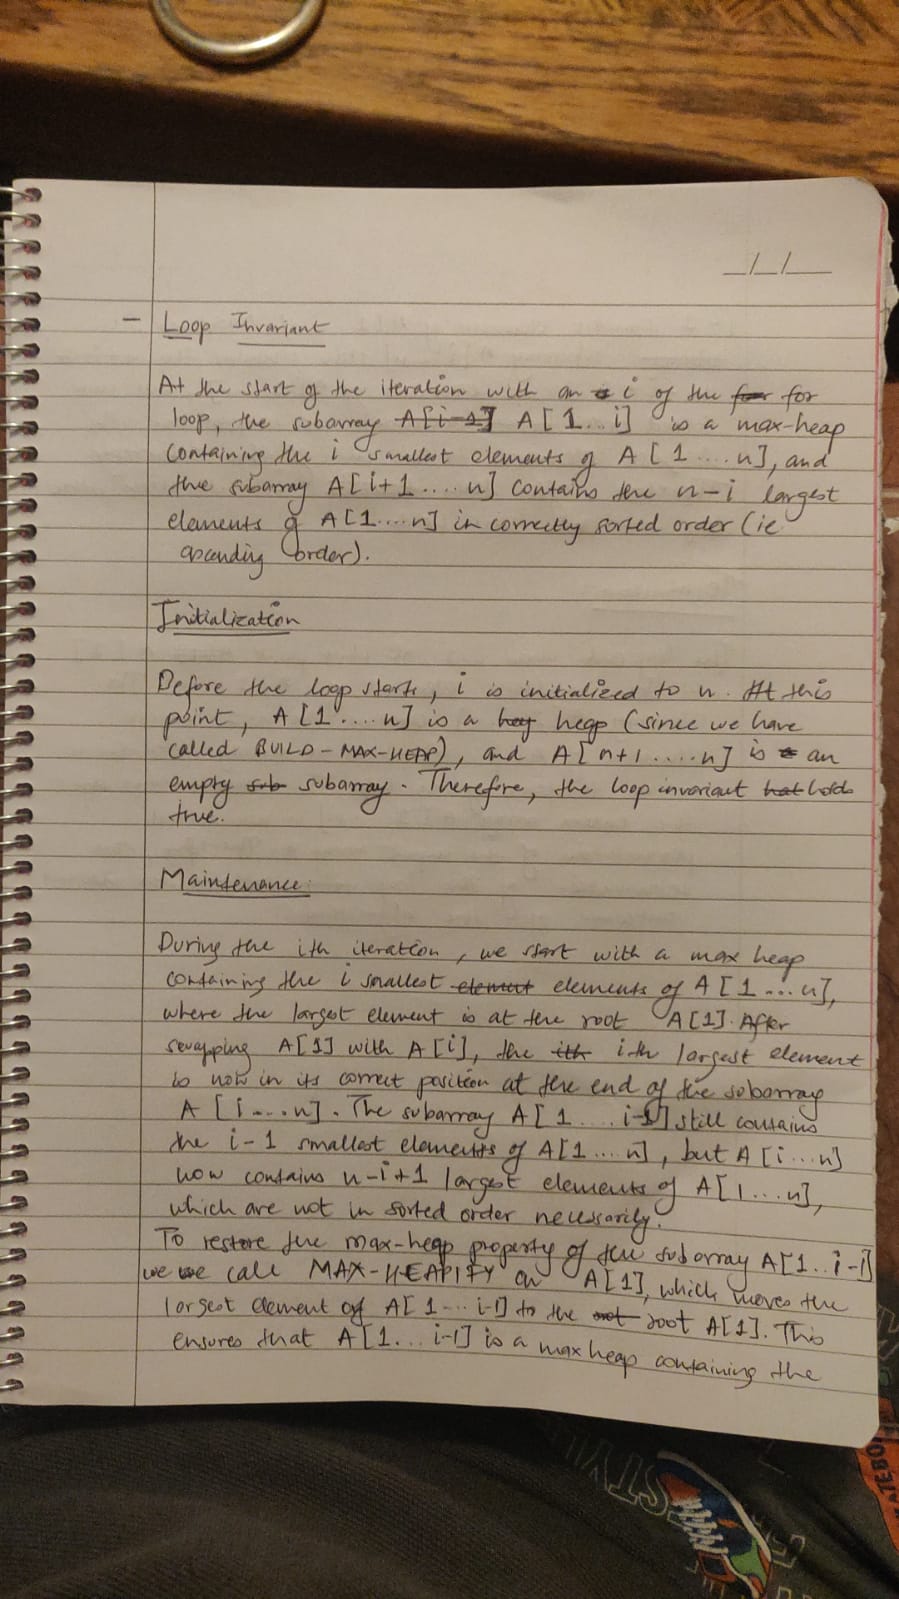 _/_/__
- Loop Invariant
At the start of the iteration with an i of the for
loop, the subarray A[i-1] A[1...i] is a max-heap
containing the i smallest elements of A[1....n], and
the subarray A[i+1....n] contains the n-i largest
elements of A[1....n] in correctly sorted order (ie
ascending order).
Initialization
Before the loop starts, i is initialized to n. At this
point, A[1....n] is a heap (since we have
called BUILD-MAX-HEAP), and A[n+1....n] is an
empty sub subarray. Therefore, the loop invariant holds
true.
Maintenance:
During the ith iteration, we start with a max heap
containing the i smallest element elements of A[1...n],
where the largest element is at the root A[1]. After
swapping A[1] with A[i], the ith ith largest element
is now in its correct position at the end of the subarray
A[1....n]. The subarray A[1....i-1] still contains
the i-1 smallest elements of A[1....n], but A[i...n]
now contains n-i+1 largest elements of A[1...n],
which are not in sorted order necessarily.
To restore the max-heap property of the subarray A[1..i-1]
we we call MAX-HEAPIFY on A[1], which moves the
largest element of A[1...i-1] to the root A[1]. This
ensures that A[1...i-1] is a max heap containing the
STYL
ATEBO